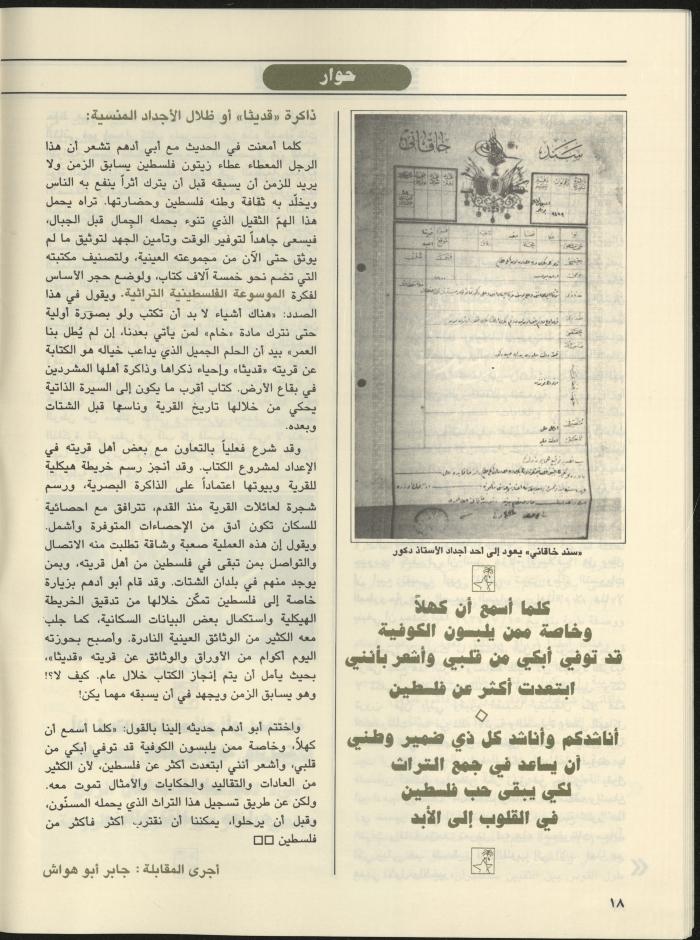 حوار
ذاكرة «قديثا» أو ظلال الأجداد المنسية:
كلما أمعنت في الحديث مع أبي أدهم تشعر أن هذا
الرجل المعطاء عطاء زيتون فلسطين يسابق الزمن ولا
يريد للزمن أن يسبقه قبل أن يترك أثراً ينفع به الناس
ويخلّد به ثقافة وطنه فلسطين وحضارتها. تراه يحمل
هذا الهمّ الثقيل الذي تنوء بحمله الجِمال قبل الجبال،
فيسعى جاهداً لتوفير الوقت وتأمين الجهد لتوثيق ما لم
يوثق حتى الآن من مجموعته العينية، ولتصنيف مكتبته
التي تضم نحو خمسة آلاف كتاب، ولوضع حجر الأساس
لفكرة الموسوعة الفلسطينية التراثية. ويقول في هذا
الصدد: «هناك أشياء لا بد أن تكتب ولو بصورة أولية
حتى نترك مادة «خام» لمن يأتي بعدنا، إن لم يُطل بنا
العمر» بيد أن الحلم الجميل الذي يداعب خياله هو الكتابة
عن قريته «قديثا» وإحياء ذكراها وذاكرة أهلها المشردين
في بقاع الأرض. كتاب أقرب ما يكون إلى السيرة الذاتية
يحكي من خلالها تاريخ القرية وناسها قبل الشتات
وبعده.
وقد شرع فعلياً بالتعاون مع بعض أهل قريته في
الإعداد لمشروع الكتاب. وقد أنجز رسم خريطة هيكلية
للقرية وبيوتها اعتماداً على الذاكرة البصرية، ورسم
شجرة لعائلات القرية منذ القدم، تترافق مع احصائية
للسكان تكون أدق من الإحصاءات المتوفرة وأشمل.
ويقول إن هذه العملية صعبة وشاقة تطلبت منه الاتصال
والتواصل بمن تبقى في فلسطين من أهل قريته، وبمن
يوجد منهم في بلدان الشتات. وقد قام أبو أدهم بزيارة
خاصة إلى فلسطين تمكّن خلالها من تدقيق الخريطة
الهيكلية واستكمال بعض البيانات السكانية، كما جلب
معه الكثير من الوثائق العينية النادرة. وأصبح بحوزته
اليوم أكوام من الأوراق والوثائق عن قريته «قديثا»،
بحيث يأمل أن يتم إنجاز الكتاب خلال عام. كيف لا؟!
وهو يسابق الزمن ويجهد في أن يسبقه مهما يكن!
واختتم أبو أدهم حديثه إلينا بالقول: «كلما أسمع أن
كهلاً، وخاصة ممن يلبسون الكوفية قد توفي أبكي من
قلبي، وأشعر أنني ابتعدت أكثر عن فلسطين، لأن الكثير
من العادات والتقاليد والحكايات والأمثال تموت معه.
ولكن عن طريق تسجيل هذا التراث الذي يحمله المسنّون،
وقبل أن يرحلوا، يمكننا أن نقترب أكثر فأكثر من
فلسطين
أجرى المقابلة: جابر أبو هواش
سند خاقاني
«سند خاقاني» يعود إلى أحد أجداد الأستاذ دكور
كلما أسمع أن كهلاً
وخاصة ممن يلبسون الكوفية
قد توفي أبكي من قلبي وأشعر بأنني
ابتعدت أكثر عن فلسطين
أناشدكم وأناشد كل ذي ضمير وطني
أن يساعد في جمع التراث
لكي يبقى حب فلسطين
في القلوب إلى الأبد
١٨